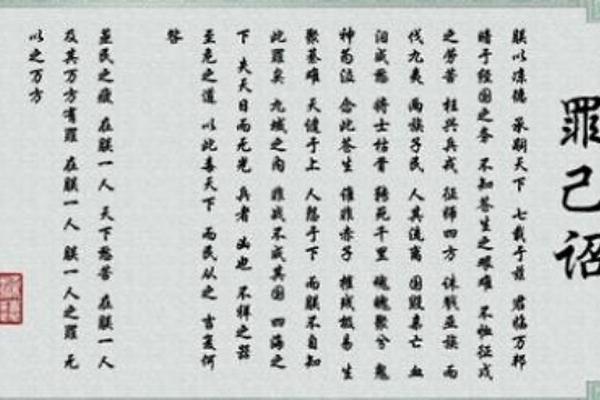 罪己诏
朕以凉德 承嗣天下 七载于兹 君临万邦
暗于经国之务 不知苍生之艰难 不恤征戍
之劳苦 枉兴兵戎 征师四方 诛戮亚族 而
伐九夷 两族子民 人其流离 国毁亲亡 血
泪成愁 将士枯骨 转死千里 魂魄聚兮 鬼
神为泣 念此苍生 谁非赤子 摧残极易 生
聚綦难 天谴于上 人怨于下 而朕不自知
此罪矣 九域之内 非战不威其国 四海之
下 失天日而无光 兵者 凶也 不祥之器
至危之道 以此毒天下 而民从之 吉复何
咎
盖民之疲 在朕一人 天下愁苦 在朕一人
及其万方有罪 在朕一人 朕一人之罪 无
以之万方